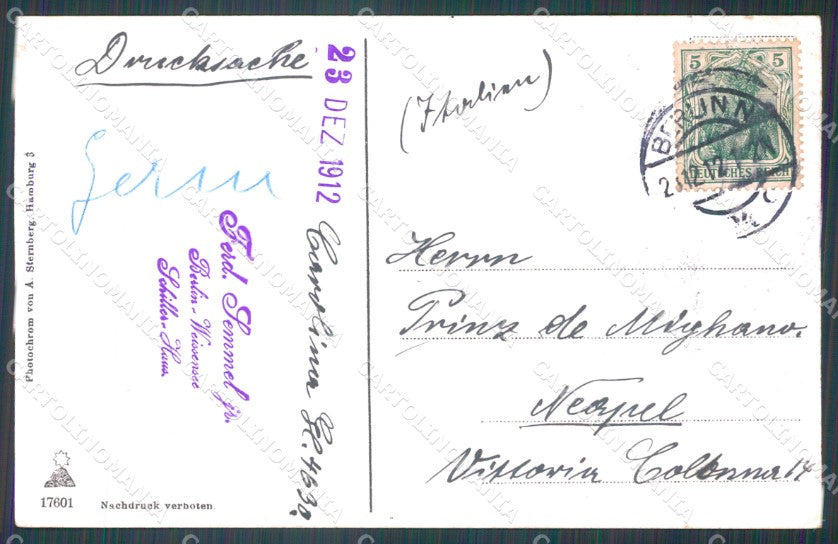 Drucksache
23 DEZ. 1912
Germ
Ferd. Semmel jr.
Berlin-Weissensee
Schiller-Haus
Carolina
Photochrom von A. Sternberg, Hamburg 3
17601
Nachdruck verboten
(Italien)
5 5
DEUTSCHES REICH
BERLIN N
23.12.12
Herrn
Prinz de Mighano.
Neapel
Vittoria Colonna 14
CARTOLINOMANIA